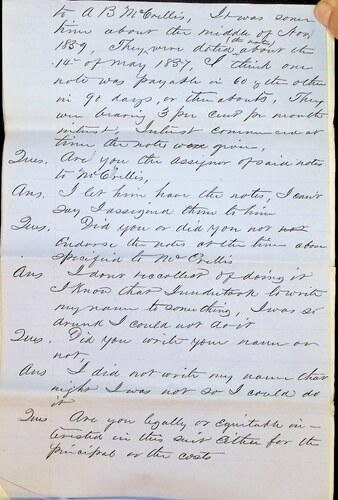 to A B McCrellis, It was some
time about the middle of Nov,
1859, They were dated (as notes) about the
14th of May 1857, I think one
note was payable in 60 & the other
in 90 days, or there abouts, They
were bearing 3 per cent per month
interest, Interest commenced at
time the notes were given,
Ques. Are you the assignor of said notes
to McCrellis,
Ans. I let him have the notes, I can't
say I assigned them to him
Ques. Did you or did you not
Endorse the notes at the time above
specified to McCrellis
Ans I dont reccollect of doing it
I know that I undertook to write
my name to something, I was so
drunk I could not do it
Ques. Did you write your name or
not,
Ans I did not write my name that
night I was not so I could do
it
Ques Are you legally or equitable in-
terested in this suit either for the
principal or the costs